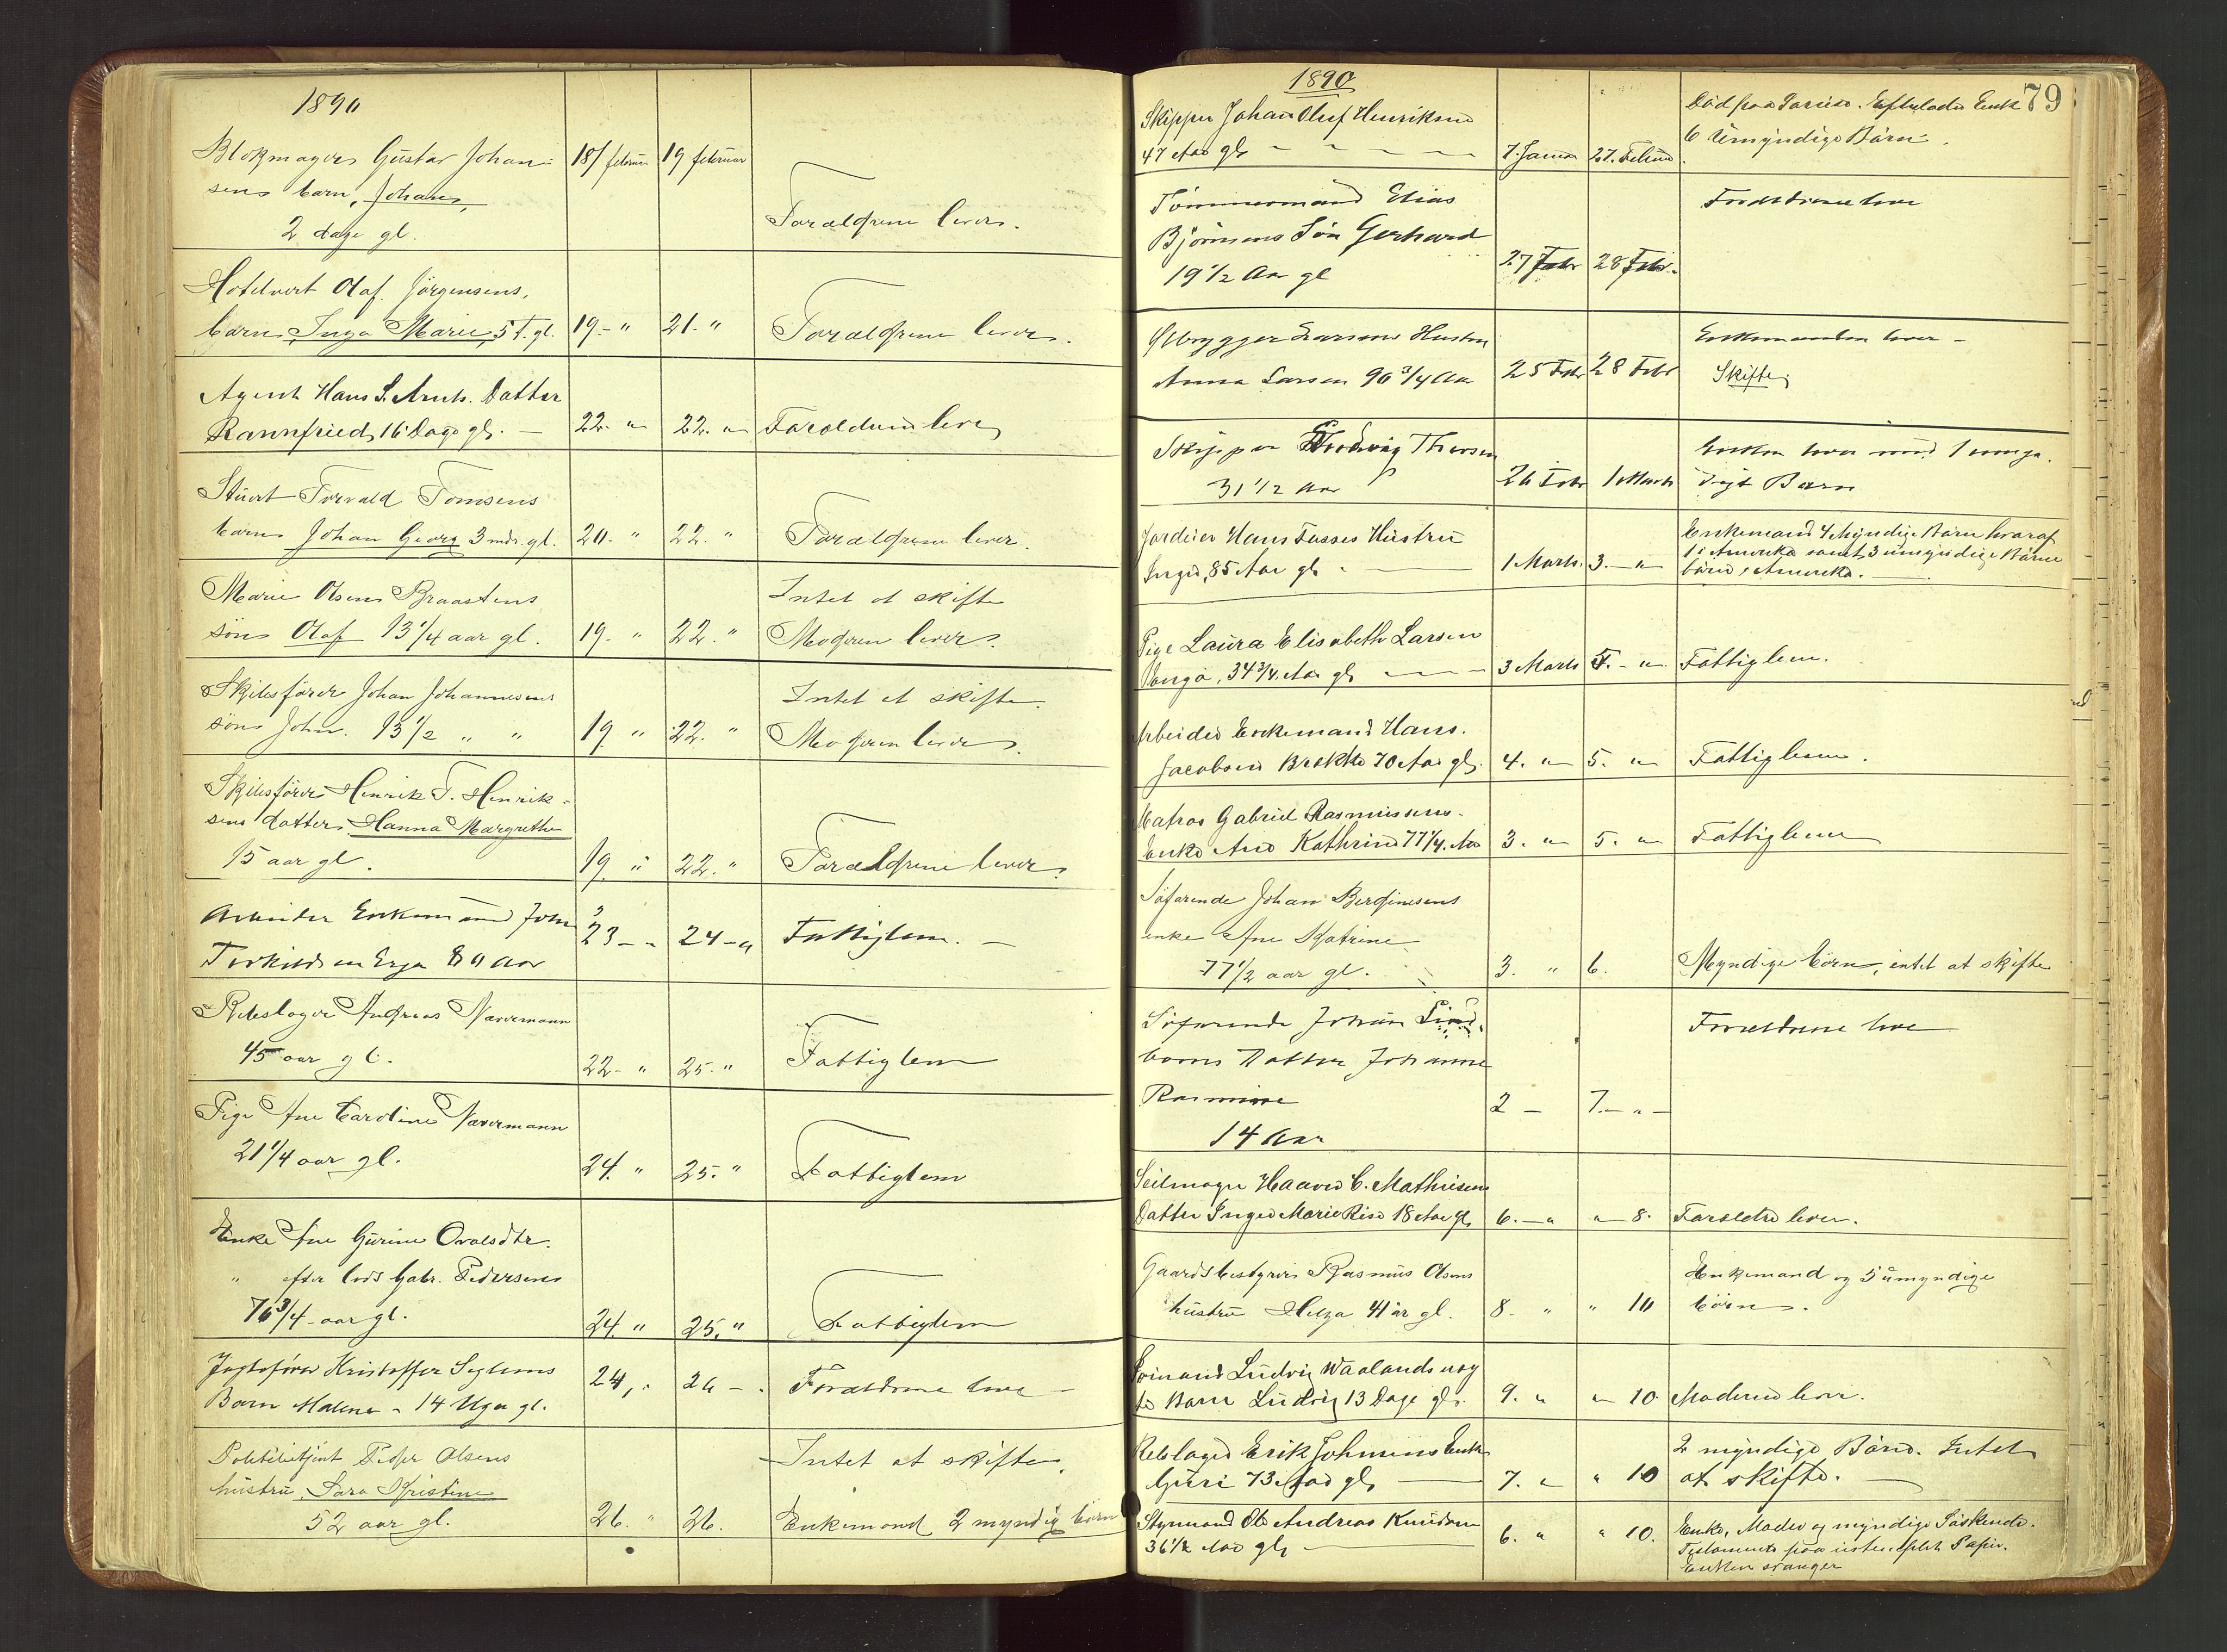 1890
Blokmager Gustav Johan-
sens barn, Johan, 18/ februar 19 februar
2 dage gl. Forældrene lever.
Hotelvert Olaf Jörgensens,
barn, Inga Marie, 5 T. gl. 19.- " 21. " Forældrene lever.
Agent Hans S. Arnts. Datter
Rannfried, 16 Dage gl. — 22. " 22. " Forældrene lever
Stuert Torvald Tomsens
barn Johan Georg 3 mdr. gl. 20. " 22. " Forældrene lever.
Marie Olsen Braastens Intet at skifte
sön Olaf 13 1/4 aar gl. 19. " 22. " Moderen lever.
Skibsförer Johan Johannesens Intet at skifte
sön John. 13 1/2 " " 19 " 22. " Moderen lever.
Skibsförer Henrik T. Henrik-
sens datter, Hanna Margrethe
15 aar gl. 19 " 22. " Forældrene lever.
Arbeider Enkemand John
Torkildsen Erga 80 Aar 23 - " 24 - " Fattiglem. —
Rebslager Andreas Nævermann
45 aar gl. 22. " 25. " Fattiglem
Pige Ane Caroline Nævermann
21 1/4 aar gl. 24. " 25. " Fattiglem
Enke Ane Gurine Dtr.
" efter lods Gabr. Pedersen
76 3/4 aar gl. 24. " 25. " Fattiglem
Jagtsförer Kristoffer Seglems
Barn Malene - 14 Uger gl. 24, " 26 - Forældrene leve -
Politibetjent Peder Olsens Intet at skifte,
hustru, Sara Kristine
52 aar gl. 26. " 26. Enkemand 2 myndig börn
1890
79
Skipper Johan Oluf Henriksen Död paa . Efterlader Enke
47 Aar gl. 7. Januar 27. Februar 6 Umyndige Börn.
Tömmermand Elias Forældrene leve
Björnsens Sön Gerhard
19 1/2 Aar gl 27 Febr 28 Febr.
Ölbrygger Larsens Hustru Enkemanden lever -
Anna Larsen 90 3/4 Aar 25 Febr 28 Febr Skifte
Skipper Thorsen Enken lever med 1 umyn-
31 1/2 Aar 26 Febr 1 Marts digt Barn
Jordeier Hans Fusses Hustru Enkemand 4 Myndige Börn hvoraf
1 i Amerika samt 3 umyndige Börne
Inger, 85 Aar gl. 1 Marts. 3. — " börn i Amerika.
Pige Laura Elisabeth Larsen
34 3/4 Aar gl. 3 Marts 5. - " Fattiglem.
Arbeider Enkemand Hans.
Jacobsen Brekke 70 Aar gl. 4. " 5. " Fattiglem.
Matros Gabriel Rasmussens.
Enke Ane Kathrine 77 1/4. Aar 3. " 5. " Fattiglem
Söfarende Johan Berdinesens
enke Ane Katrine
77 1/2 aar gl. 3. " 6. Myndige börn, intet at skifte
Söfarende Johan Lind- Forældrene leve
boms Datter Johanne
Rasmine 2 — 7. — " —
14 Aar
Seilmager Haaver C. Mathiesens
Datter Inger Marie 18 Aar gl. 6. — " " 8. Forældre lever.
Gaardsbestyrer Rasmus Olsens Enkemand og 5 umyndige
hustru Helga 41 år gl. 8. " " 10 börn.
Ludvig Waalands
Barn Ludvig 13 Dage gl. 9. " " 10 Moderen lever.
Rebslager Erik Johnsens Enke 2 myndige Börn. Intet
Guri 73 Aar gl. 7. " " 10 at skifte.
Styrmand Ole Andreas Knudsen Enke, Moder og myndige Söskende.
36 1/2 Aar gl. 6. " " 10. Testamente paa ustemplet Papir.
Enken svanger